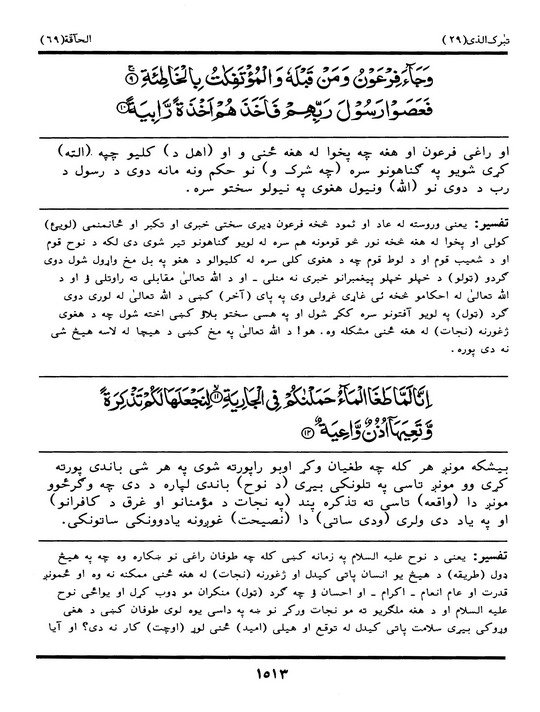 تبٰرک الذی (٢٩) الحآقة (٦٩)
وَجَآءَ فِرْعَوْنُ وَمَنْ قَبْلَهٗ وَالْمُؤْتَفِكٰتُ بِالْخَاطِئَةِ ۝٩
فَعَصَوْا رَسُوْلَ رَبِّهِمْ فَاَخَذَهُمْ اَخْذَةً رَّابِيَةً ۝١٠
او راغی فرعون او هغه چه پخوا له هغه ځنی و او (اهل د) کلیو چپه (التّه)
کړی شویو په ګناهونو سره (چه شرک و) نو حکم ونه مانه دوی د رسول د
رب د دوی نو (الله) ونیول هغوی په نیولو سختو سره.
تفسیر: یعنی وروسته له عاد او ثمود څخه فرعون ډیری سختی خبری او تکبر او ځانمنمی (لویئ)
کولی او پخوا له هغه څخه نور څو قومونه هم سره له لویو ګناهونو تیر شوی دی لکه د نوح قوم
او د شعیب قوم او د لوط قوم چه د هغوی کلی سره له کلیوالو د هغو په بل مخ واړول شول دوی
ګردو (ټولو) د خپلو خپلو پیغمبرانو خبری نه منلی ـ او د الله تعالیٰ مقابلی ته راوتلی ؤ او د
الله تعالیٰ له احکامو څخه ئی غاړی غړولی وی په پای (آخر) کښی د الله تعالیٰ له لوری دوی
ګرد (ټول) په لویو آفتونو سره ککړ شول او په هسی سختو بلاؤ کښی اخته شول چه د هغوی
ژغورنه (نجات) له هغه ځنی مشکله وه. هو! د الله تعالیٰ په مخ کښی د هیچا له لاسه هیڅ شی
نه دی پوره.
اِنَّا لَمَّا طَغَا الْمَآءُ حَمَلْنٰكُمْ فِى الْجَارِيَةِ ۝١١ لِنَجْعَلَهَا لَكُمْ تَذْكِرَةً
وَّتَعِيَهَآ اُذُنٌ وَّاعِيَةٌ ۝١٢
بیشکه مونږ هر کله چه طغیان وکړ اوبو راپورته شوی په هر شی باندی پورته
کړی وو مونږ تاسی په تلونکی بیړی (د نوح) باندی لپاره د دی چه وګرځوو
مونږ دا (واقعه) تاسی ته تذکره پند (په نجات د مؤمنانو او غرق د کافرانو)
او په یاد دی ولری (ودی ساتی) دا (نصیحت) غوږونه یادوونکی ساتونکی.
تفسیر: یعنی د نوح علیه السلام په زمانه کښی کله چه طوفان راغی نو ښکاره وه چه په هیڅ
ډول (طریقه) د هیڅ یو انسان پاتی کیدل او ژغورنه (نجات) له هغه ځنی ممکنه نه وه او ځمونږ
قدرت او عام انعام ـ اکرام ـ او احسان ؤ چه ګرد (ټول) منکران مو ډوب کړل او یواځی نوح
علیه السلام او د هغه ملګریو ته مو نجات ورکړ نو ښه په داسی یوه لوی طوفان کښی د هغی
وړوکی بیړی سلامت پاتی کیدل له توقع او هیلی (امید) ځنی لوړ (اوچت) کار نه دی؟ او آیا
١٥١٣